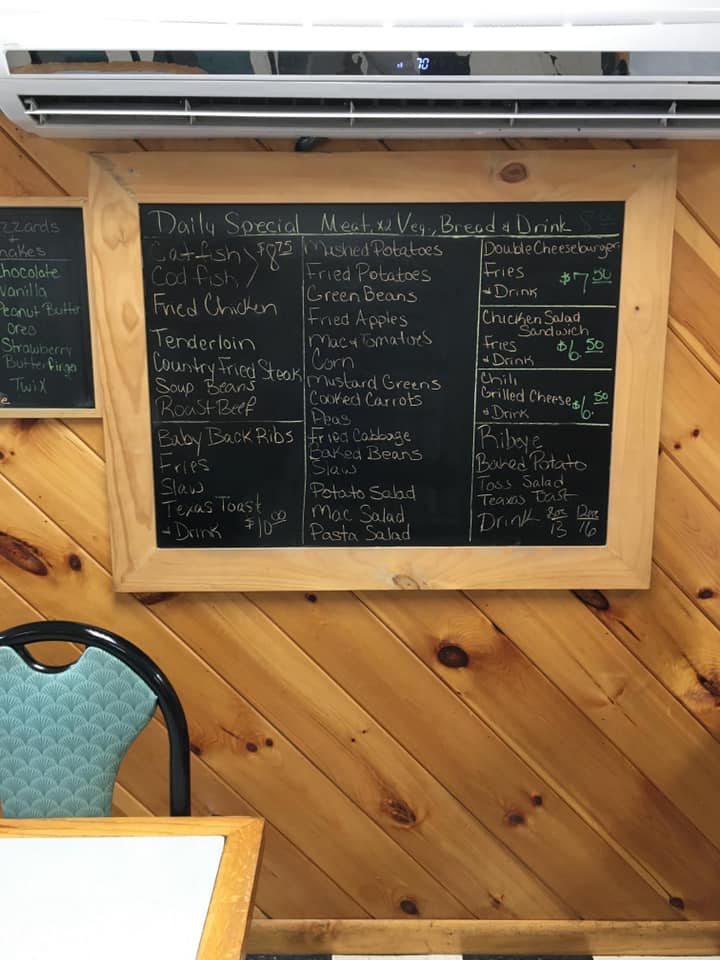 70
zzards
+
nakes
chocolate
Vanilla
Peanut Butter
oreo
Strawberry
Butterfinger
Twix
Daily Special Meat, x2 Veg., Bread & Drink 8.00
Catfish $8.75
Cod fish
Fried Chicken
Tenderloin
Country Fried Steak
Soup Beans
Roast Beef
Baby Back Ribs
Fries
Slaw
Texas Toast
& Drink $10.00
Mashed Potatoes
Fried Potatoes
Green Beans
Fried Apples
Mac & Tomatoes
Corn
Mustard Greens
Cooked Carrots
Peas
Fried Cabbage
Baked Beans
Slaw
Potato Salad
Mac Salad
Pasta Salad
Double Cheeseburger
Fries
& Drink $7.50
Chicken Salad
Sandwich
Fries $6.50
& Drink
Chili
Grilled Cheese $6.50
& Drink
Ribeye
Baked Potato
Toss Salad
Teaxas Toast
Drink 8oz 13 12oz 16